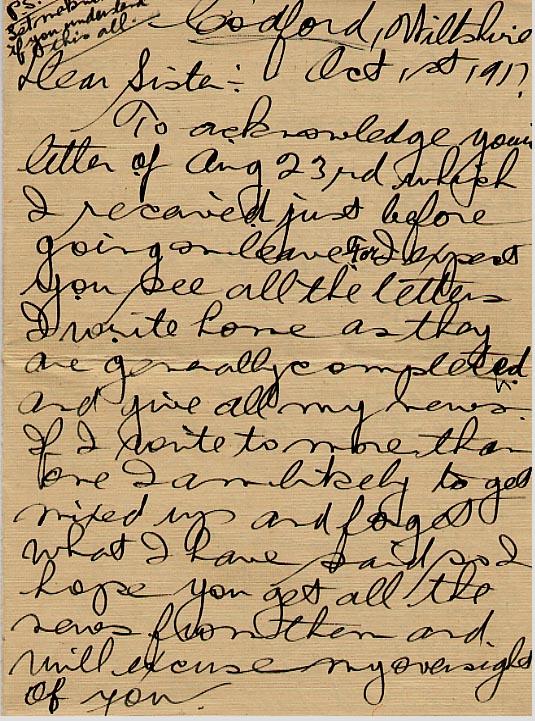 PS.
if you understand
this all.
Codford, Wiltshire
Oct 1st, 1917
Dear Sister:
To acknowledge your
letter of Aug 23rd which
I received just before
going on leave For I expect
you see all the letters
I write home as they
are generally completed
and give all my news.
If I write to more than
one I am likely to get
mixed up and forget
what I have said so I
hope you get all the
news from them and
will excuse my oversight
of you.